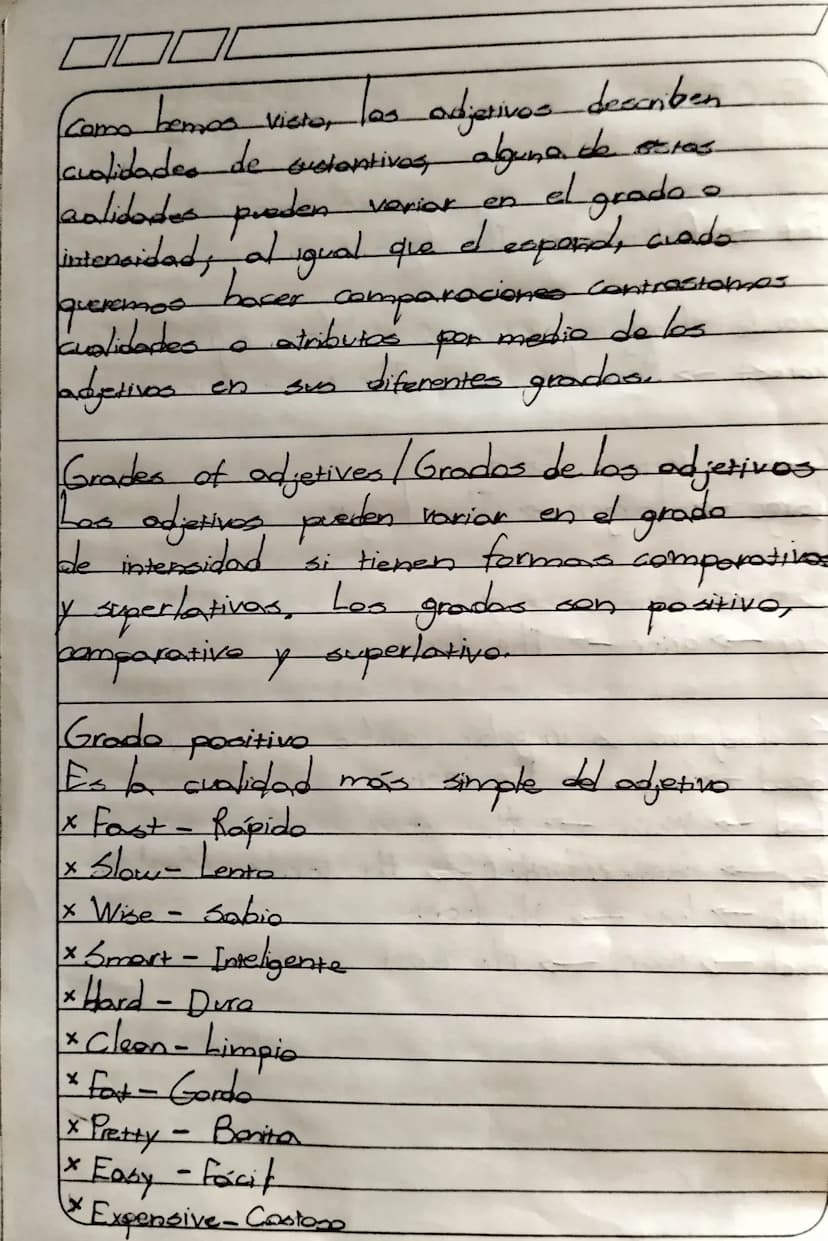 Como hemos visto, los adjetivos describen
cualidades de sustantivos, alguna de estas
cualidades pueden variar en el grado o
intensidad, al igual que el español, cuado
queremos hacer comparaciones contrastamos
cualidades o atributos por medio de los
adjetivos en sus diferentes grados.
Grades of adjetives / Grados de los adjetivos
Los adjetivos pueden variar en el grado
de intensidad si tienen formas comparativas
y superlativas. Los grados son positivo,
comparativo y superlativo.
Grado positivo
Es la cualidad más simple del adjetivo
x Fast - Rápido
x Slow - Lento
x Wise - Sabio
x Smart - Inteligente
x Hard - Duro
x Clean - Limpio
x Fat - Gordo
x Pretty - Bonita
x Easy - Fácil
x Expensive - Costoso